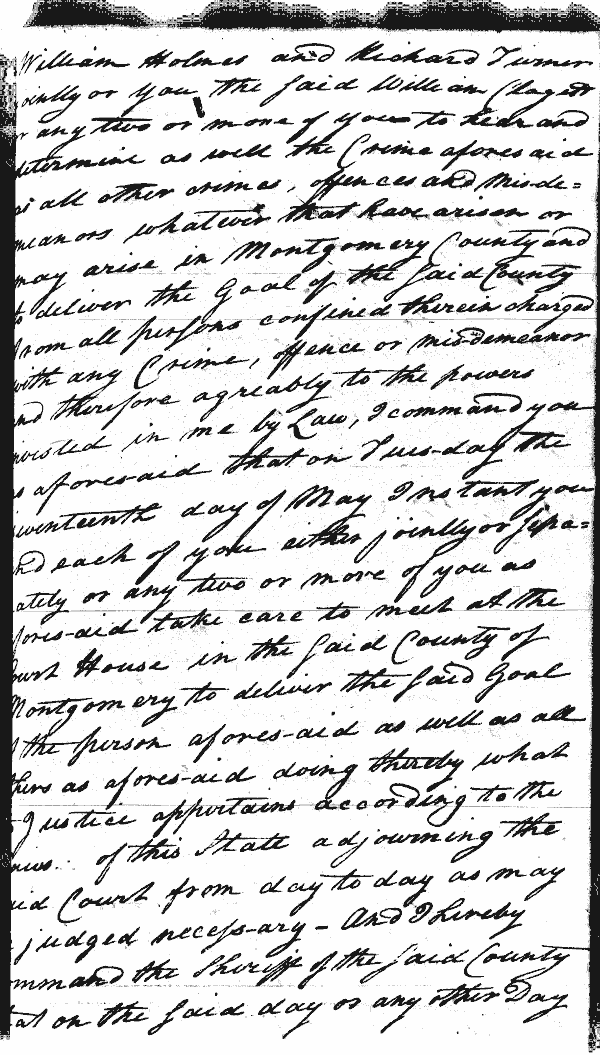 William Holmes and Richard Turner
jointly or you the said William Claget
or any two or more of you to hear and
determine as well the Crime afores aid
as all other crimes, offences and Misde=
meanors whatever that have arisen or
may arise in Montgomery County and
to deliver the Goal of the said County
from all persons confined therein charged
with any Crime, offence or mis-demeanor
and therefore agreably to the powers
invested in me by Law, I command you
as afores-aid that on Tues-day the
seventeenth day of May Instant you
and each of you either jointly or sepa=
rately or any two or more of you as
afores-aid take care to meet at the
Court House in the said County of
Montgomery to deliver the said Goal
of the person afores-aid as well as all
others as afores-aid doing thereby what
to Justice appertains according to the
Laws of this State adjourning the
said Court from day to day as may
be judged necess-ary - And I hereby
command the Sheriff of the said County
that on the said day or any other Day